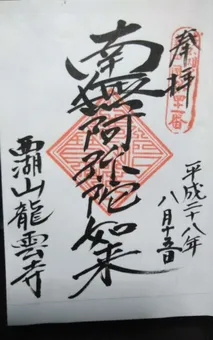 奉拝
平成二十八年
八月十五日
南無阿弥陀如来
覇山龍雲寺